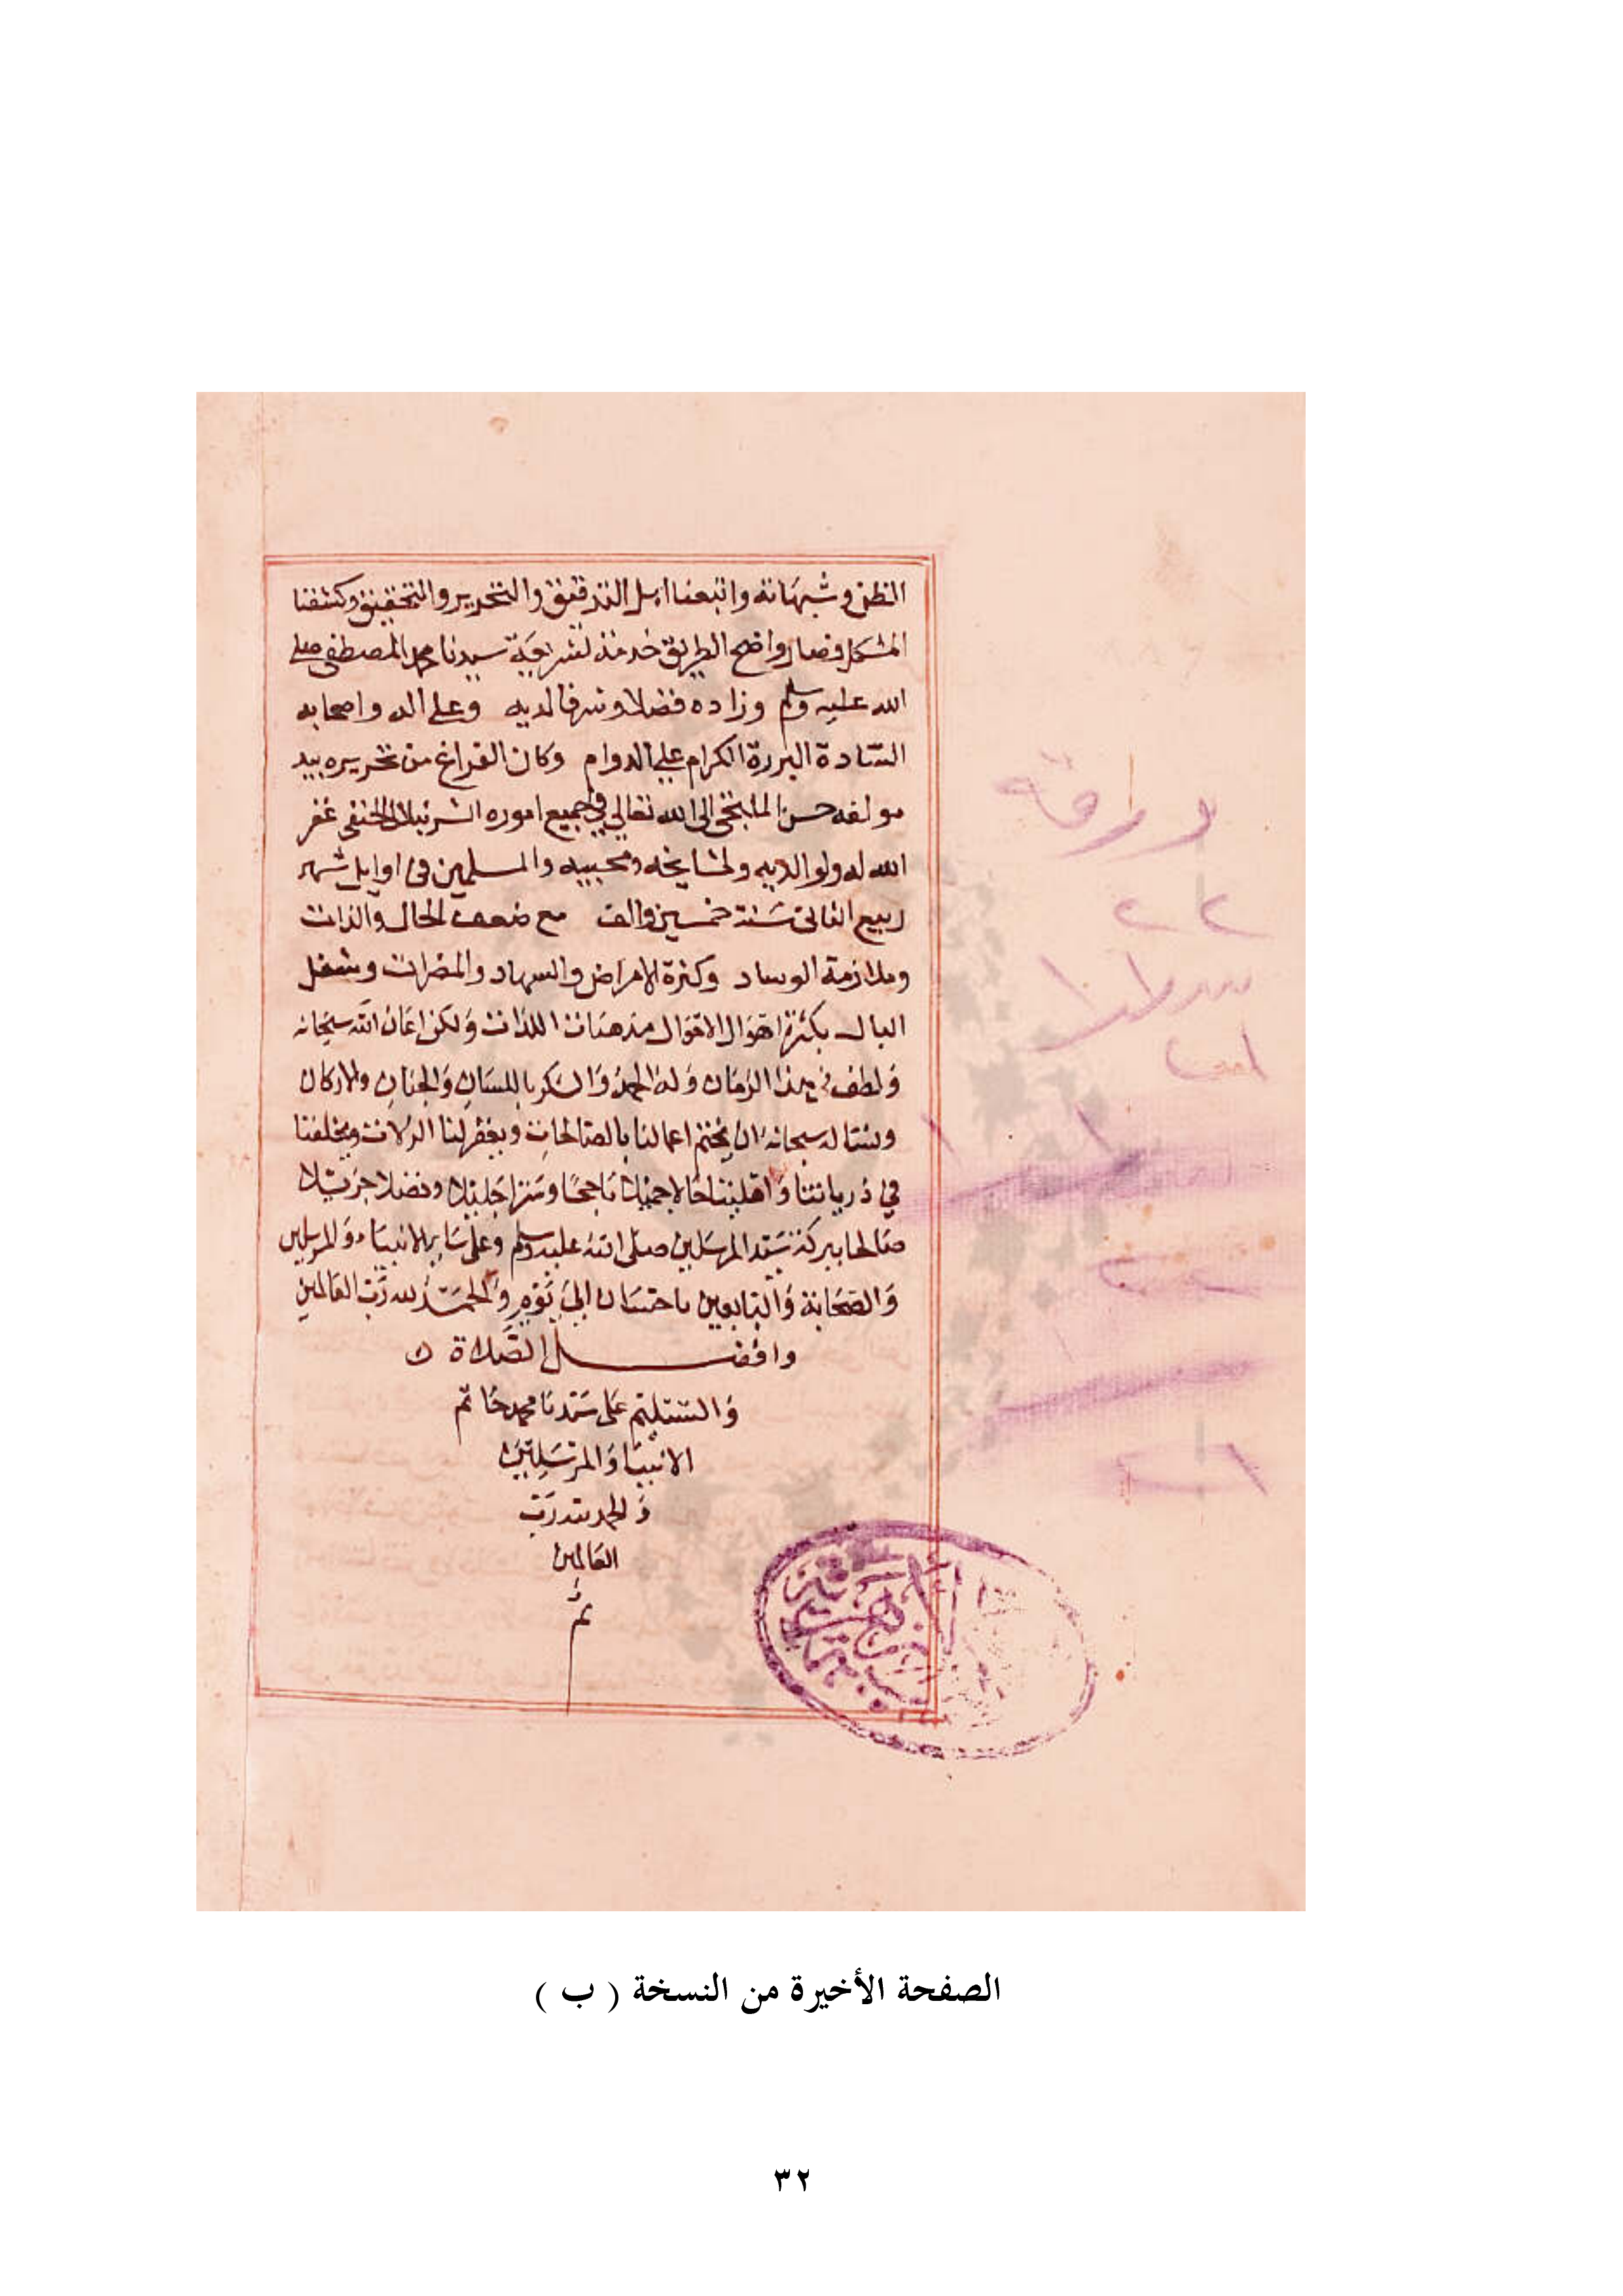 الظن وشبهاته واتبعنا اهل التدقيق والتحرير والتحقيق وكشفنا
المشكل فصار واضح الطريق خدمة لشريعة سيدنا محمد المصطفى صلى
الله عليه وسلم وزاده فضلا وشرفا لديه وعلى اله واصحابه
السادة البررة الكرام على الدوام وكان الفراغ من تحريره بيد
مولفه حسن الملتجى الى الله تعالى في جميع اموره الشرنبلالي الحنفي غفر
الله له ولوالديه ولمشايخه ومحبيه والمسلمين في اوايل شهر
ربيع الثاني سنة خمسين والف مع ضعف الحال والذات
وملازمة الوساد وكثرة الامراض والسهاد والمضرات وشغل
البال بكثرة اهوال الاقوال مذهبات اللذات ولكن اعان الله سبحانه
ولطف في هذا الزمان وله الحمد والشكر باللسان والجنان والاركان
ونساله سبحانه ان يختم اعمالنا بالصالحات ويغفر لنا الزلات ويخلفنا
في ذرياتنا حالا جميلا ناجحا وسترا جليلا وفضلا جزيلا
صالحا ببركة سيد المرسلين صلى الله عليه وسلم وعلى ساير الانبياء والمرسلين
والصحابة والتابعين باحسان الى يوم والحمد لله رب العالمين
وافضل الصلاة
والتسليم على سيدنا محمد خاتم
الانبيا والمرسلين
والحمد لله رب
العالمين
تم
ورقة
٢٢
الصفحة الأخيرة من النسخة ( ب )
٣٢